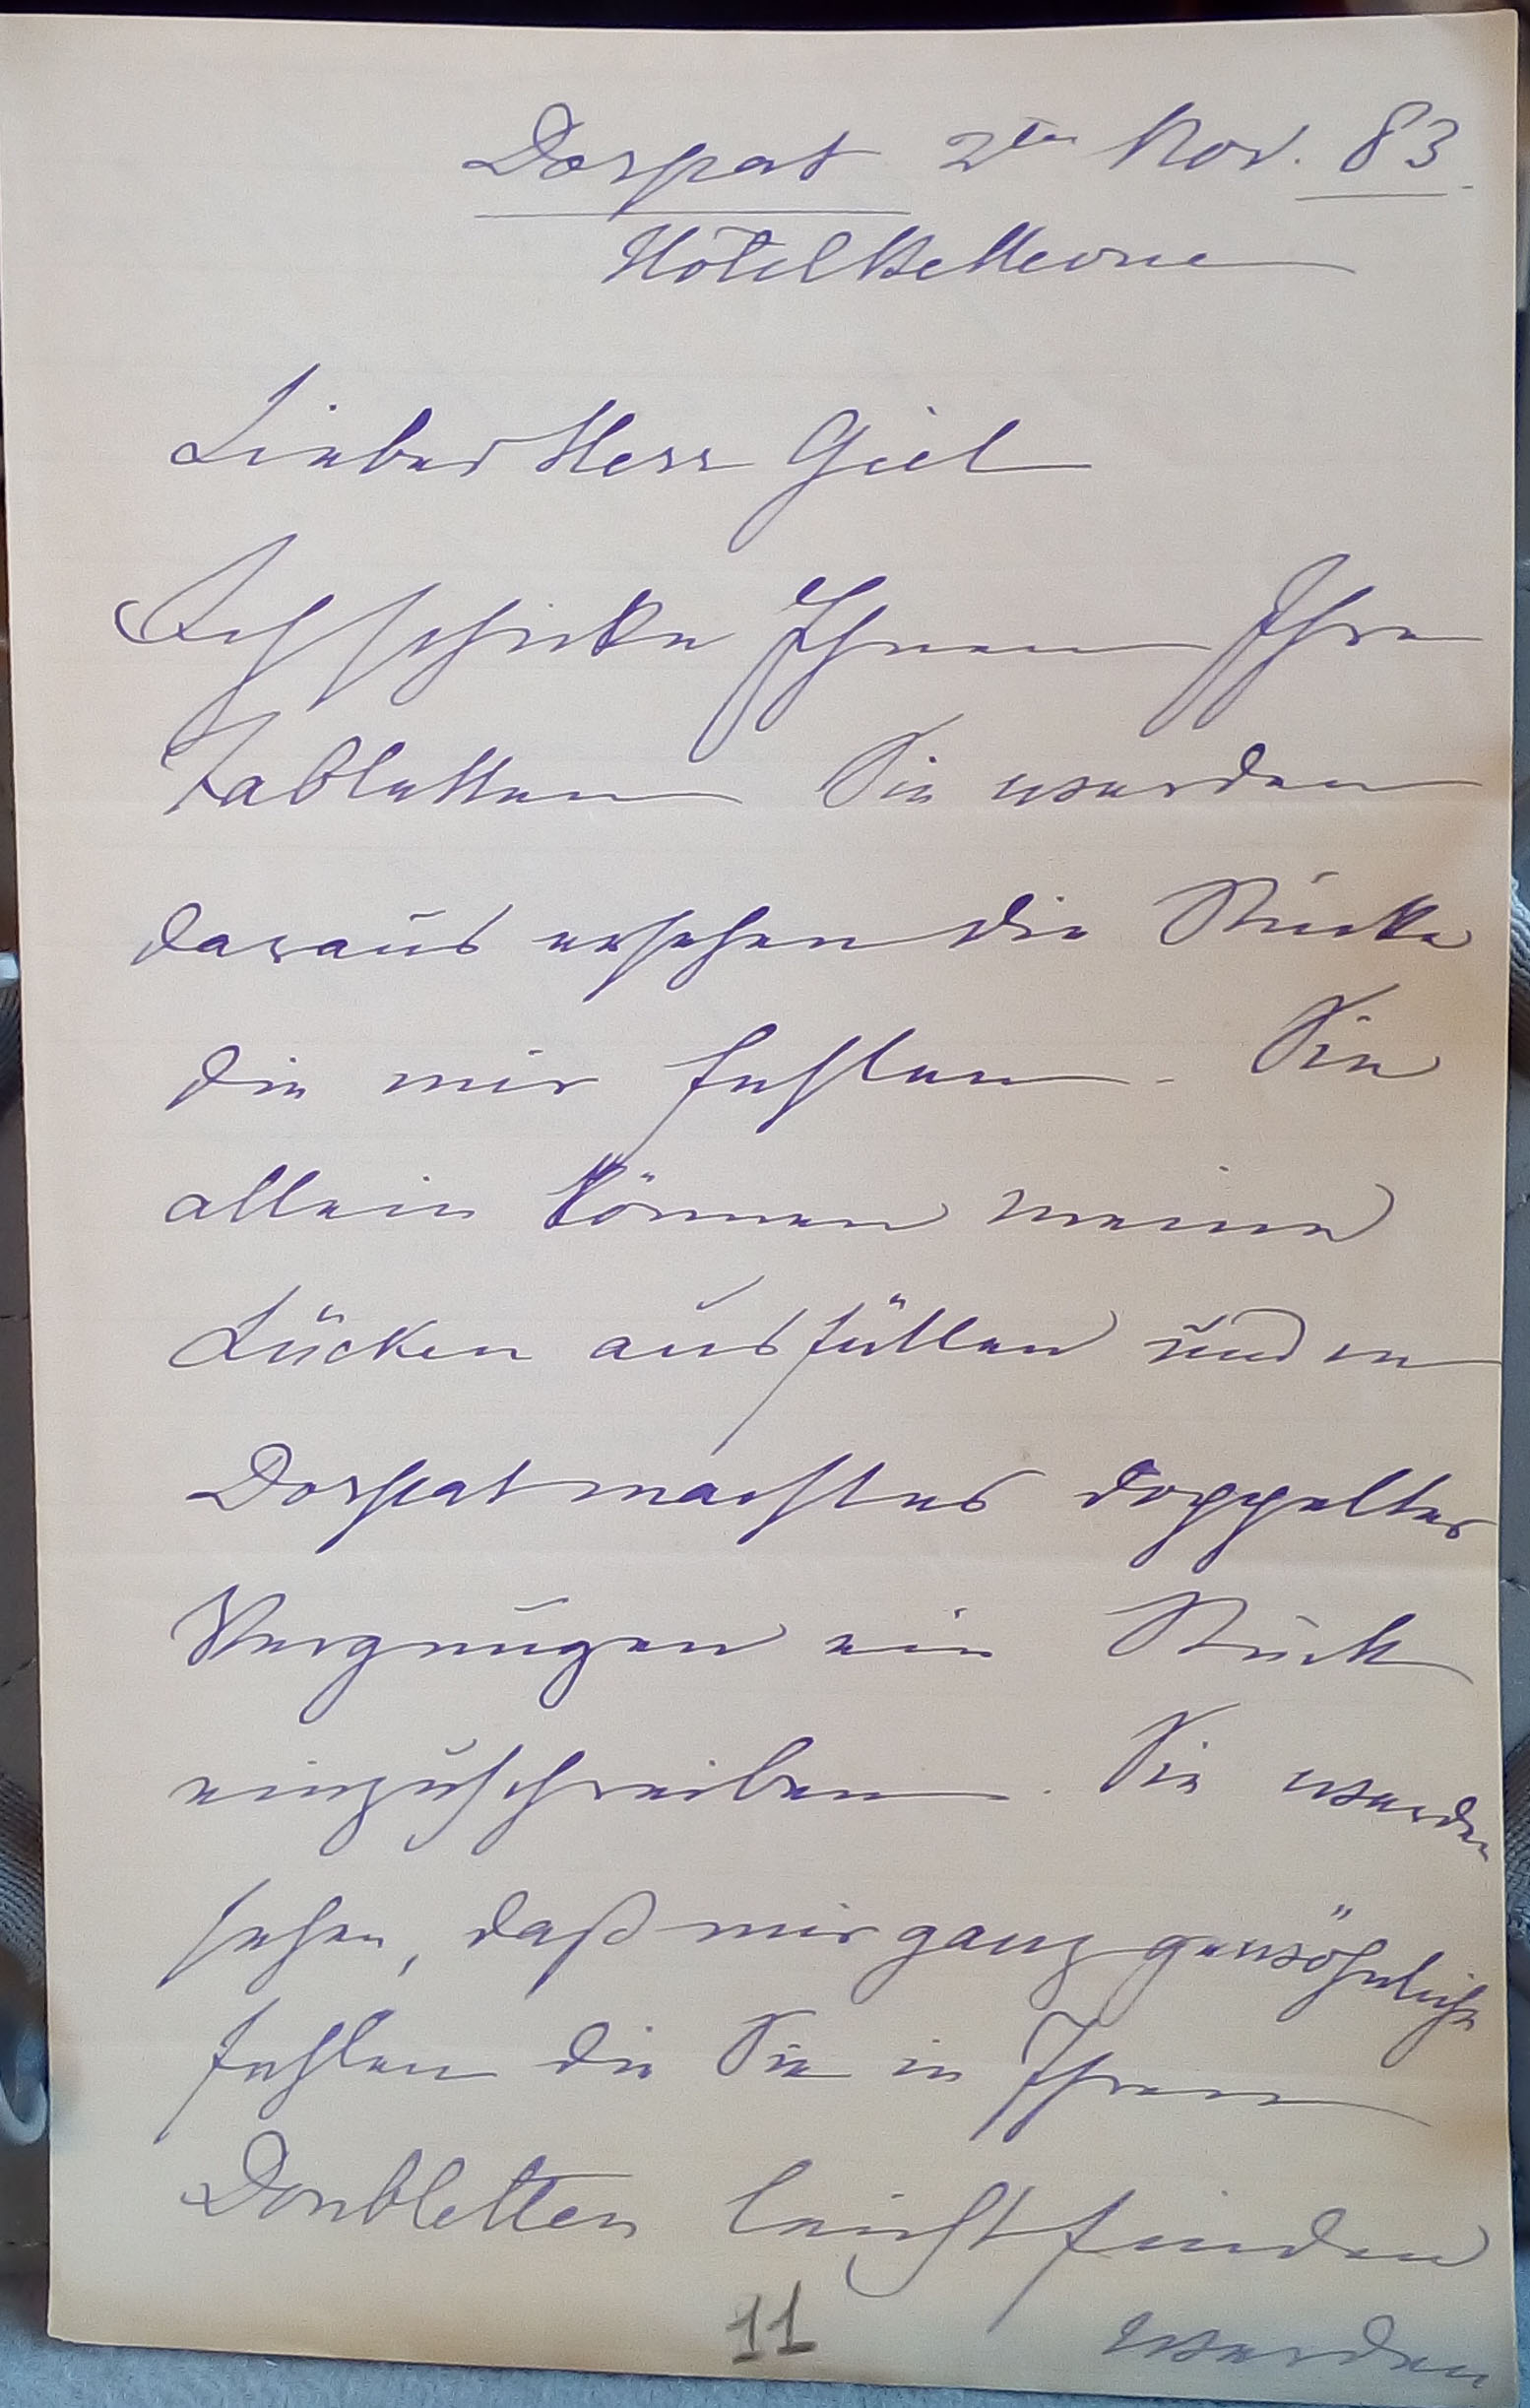 Dorpat 2ten Nov. 83.
Hôtel Bellevue
Lieber Herr Giel
Ich schicke Ihnen Ihre
Tabletten Sie werden
daraus ersehen die Stücke
die mir fehlen. Sie
allein können meine
Lücken ausfüllen und in
Dorpat macht es doppeltes
Vergnügen ein Stück
einzuschreiben. Sie werden
sehen, daß mir ganz gewöhnliche
fehlen die Sie in Ihren
Doubletten leicht finden
werden
11